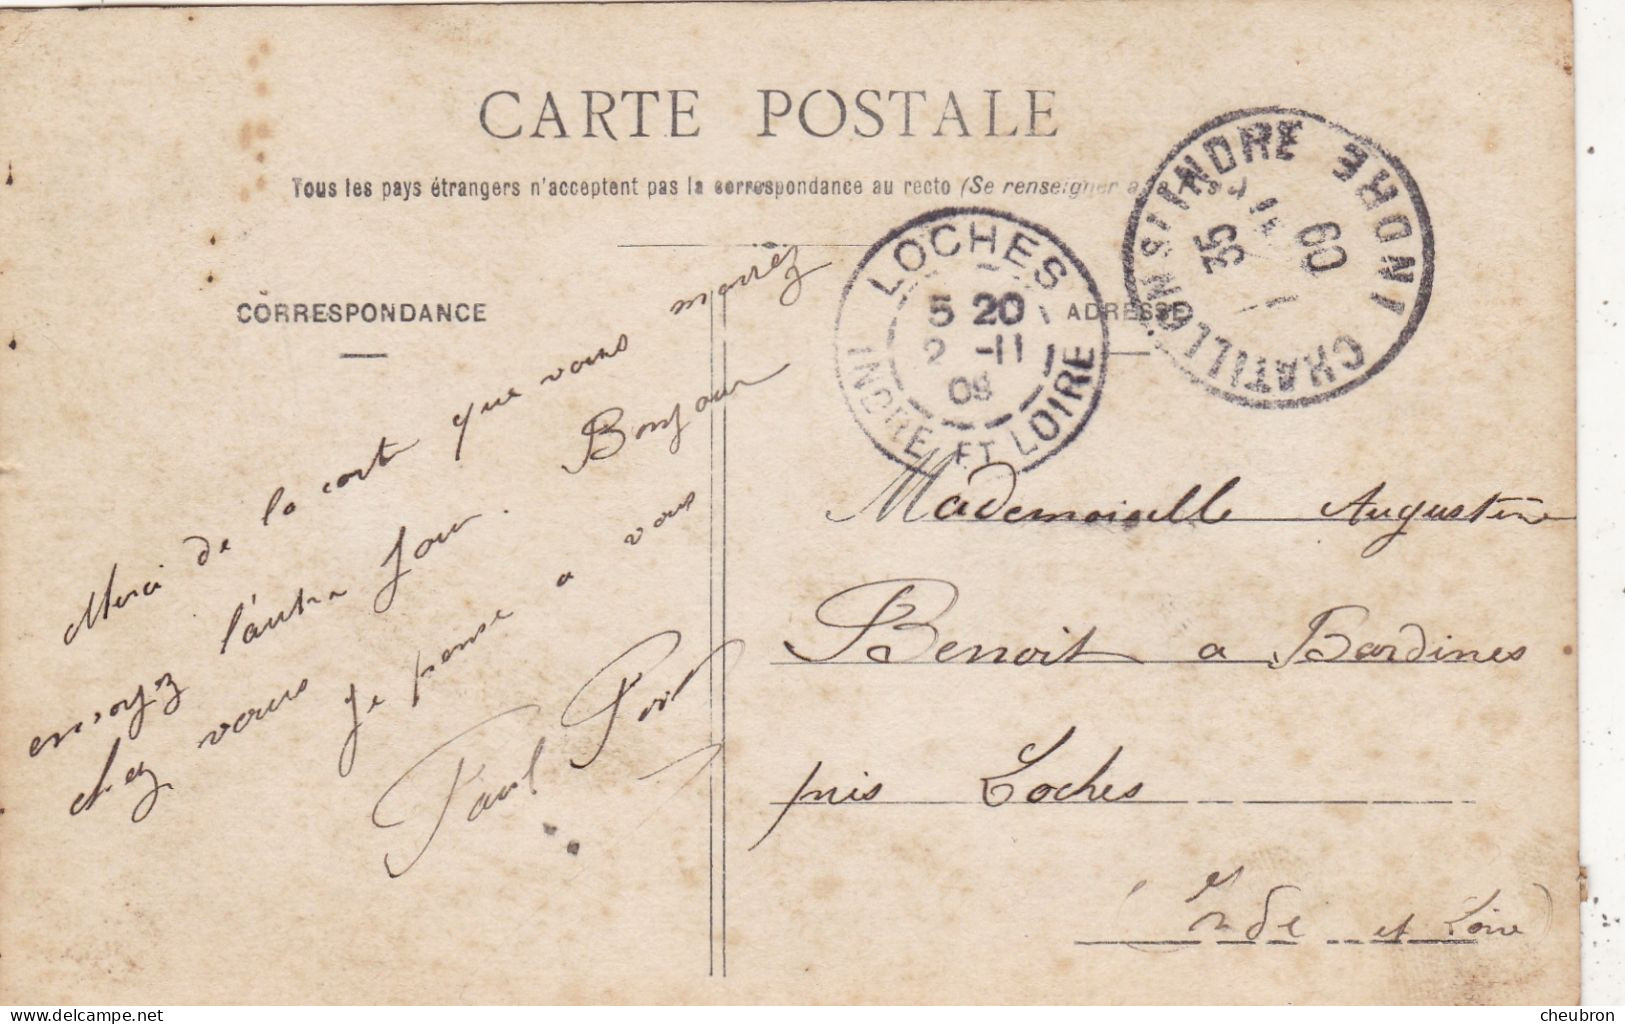 CARTE POSTALE
Tous les pays étrangers n'acceptent pas la correspondance au recto (Se renseigner a la
CORRESPONDANCE
ADRESSE
LOCHES
5 20
2 -11
09
INDRE ET LOIRE
CHATILLON S/ INDRE INDRE
35
09
Merci de la cart que vous
envoyz l'autre Jour. Bonjour
chez vous Je pense a vous
Paul
Mademoiselle Augustine
Benoit a Bardines
pris Loches
(Inde et Loire)
delcampe.net
cheubron